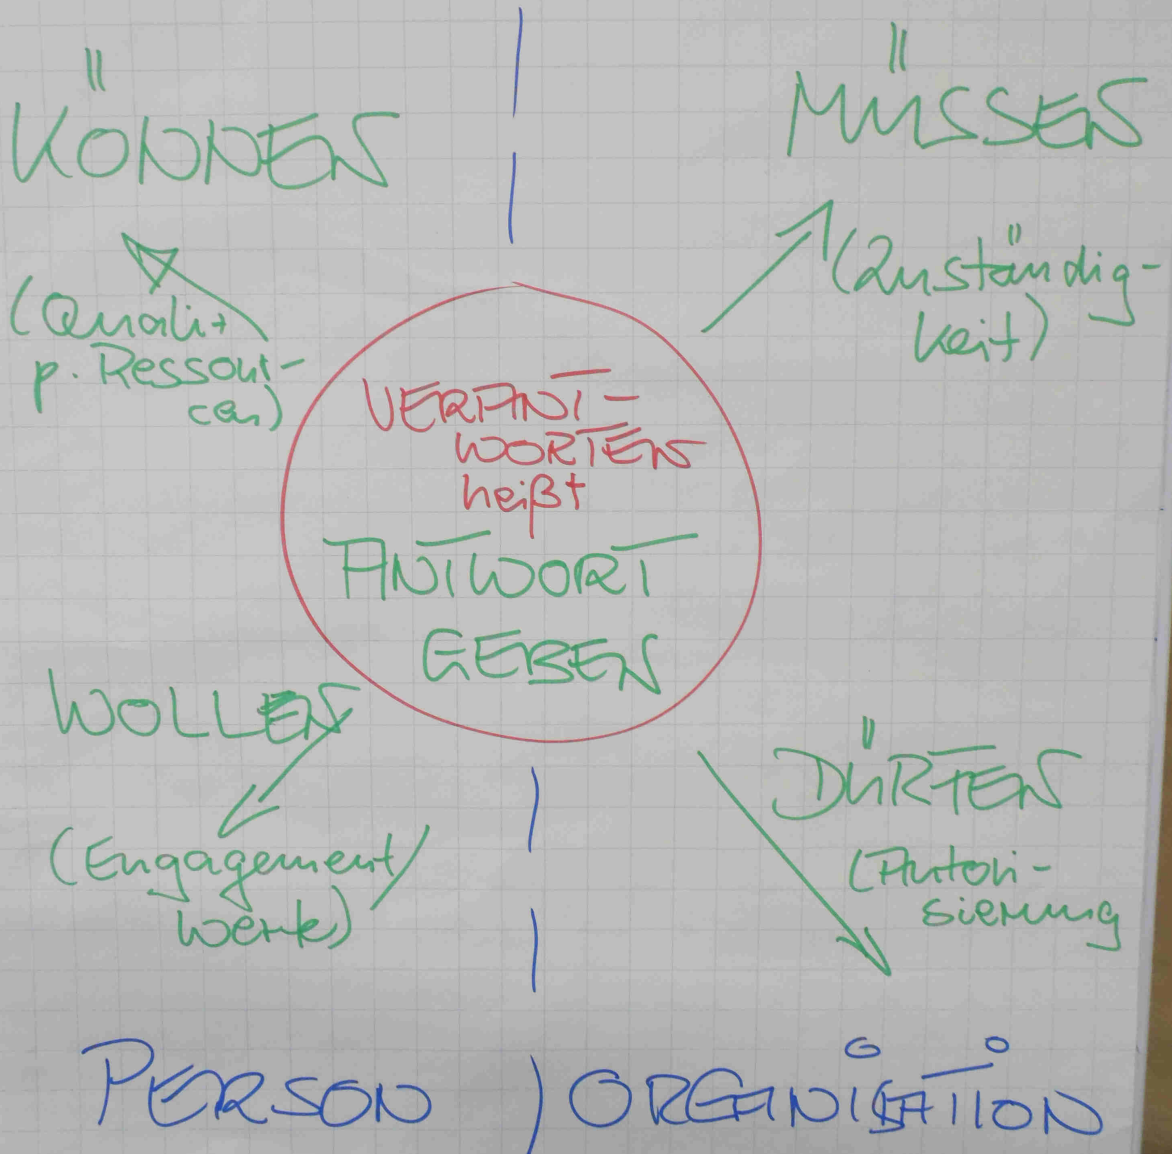 KÖNNEN
(Quali +
p. Ressour-
cen)
MÜSSEN
(Zuständig-
keit)
VERANT-
WORTEN
heißt
ANTWORT
GEBEN
WOLLEN
(Engagement/
Werte)
DÜRFEN
(Autori-
sierung
PERSON
ORGANISATION